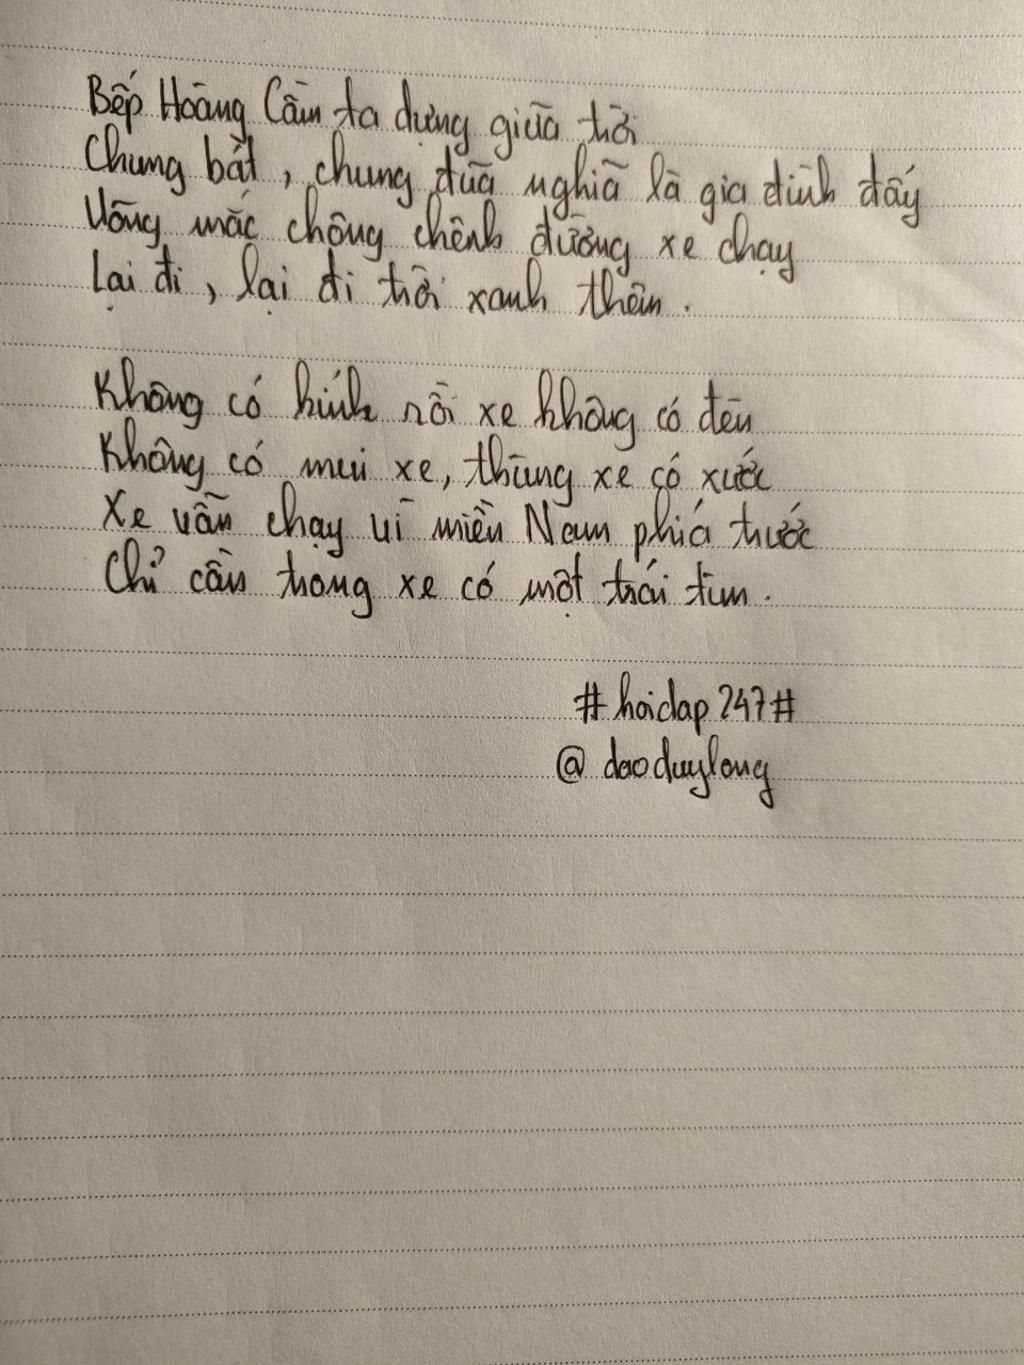 Bếp Hoàng Cầm ta dựng giữa trời
Chung bát, chung đũa nghĩa là gia đình đấy
Võng mắc chông chênh đường xe chạy
Lại đi, lại đi trời xanh thêm.
Không có kính rồi xe không có đèn
Không có mui xe, thùng xe có xước
Xe vẫn chạy vì miền Nam phía trước
Chỉ cần trong xe có một trái tim.
#hoidap247#
@daoduylong